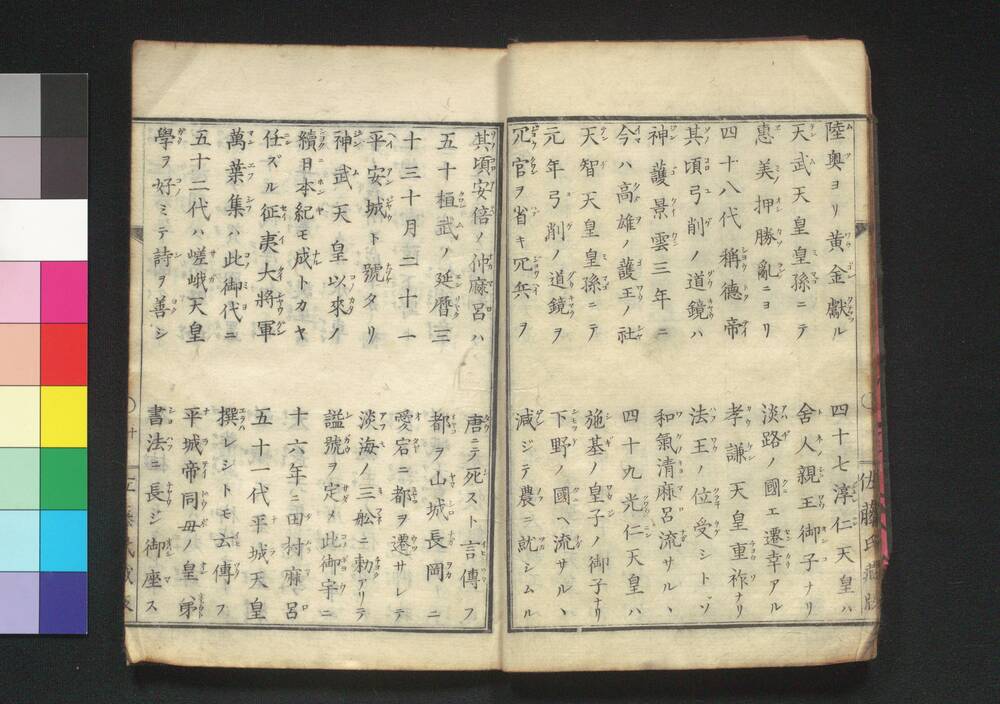 陸奥ヨリ黄金獻ル　四十七淳仁天皇ハ
天武天皇皇孫ニテ　舎人親王御子ナリ
惠美押勝亂ニヨリ　淡路ノ國エ遷幸アル
四十八代稱德帝　孝謙天皇重祚ナリ
其頃弓削ノ道鏡ハ　法王ノ位受シトソ
神護景雲三年ニ　和氣清麻呂流サルヽ
今ハ高雄ノ護王ノ社　四十九光仁天皇ハ
天智天皇皇孫ニテ　施基ノ皇子ノ御子ナリ
元年弓削ノ道鏡ヲ　下野ノ國ヘ流サルヽ
冗官ヲ省キ冗兵ヲ　減ジテ農ニ就シムル
其頃安倍ノ仲麻呂ハ　唐ニテ死スト言傳フ
五十桓武ノ延暦三　都ヲ山城長岡ニ
十三十月二十一　愛宕ニ都ヲ遷サレテ
平安城ト號タリ　淡海ノ三舩ニ勅アリテ
神武天皇以來ノ　諡號ヲ定メ此御宇ニ
續日本紀モ成トカヤ　十六年ニ田村麻呂
任ズル征夷大將軍　五十一代平城天皇
萬葉集ハ此御代ニ　撰レシトモ云傳フ
五十二代ハ嵯峨天皇　平城帝同毋ノ皇弟
學ヲ好ミテ詩ヲ善シ　書法ニ長ジ御座ス